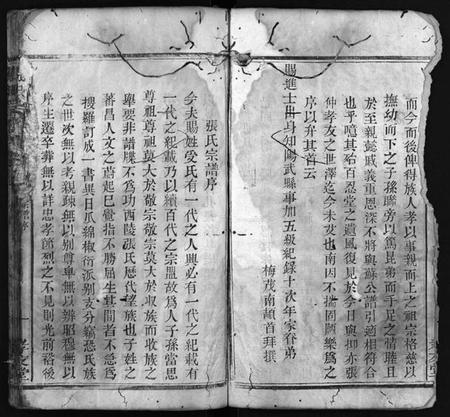 而今而後俾得族人孝以事親而上之祖宗格慈以
撫幼而下之子孫聯旁以篤昆弟而手足之情睦且
於至親懿戚義重恩深不將與蘇公譜引適相符合
也乎噫其殆百忍堂之遺風復見於今日與抑亦張
仲孝友之世澤迄今未艾也南因不揣固陋樂為之
序以弁其首云
賜進士出身知陽武縣事加五級紀錄十次年家眷弟
梅茂南頡首拜撰
張氏宗譜序
今夫賜姓受氏有一代之人興必有一代之紀載有
一代之紀載乃以續百代之宗盟故為人子孫當思
尊祖尊祖莫大於敬宗敬宗莫大於收族而收族之
舉要非譜牒不為功西陵張氏歷代望族也子姓之
蕃昌人文之蔚起已覺指不勝屈生其間者不急為
搜羅訂成一書異日瓜綿椒衍派別支分竊恐氏族
之世次無以考親疎無以別尊卑無以辨昭穆無以
序生遷卒葬無以詳忠孝節烈之不見則光前裕後